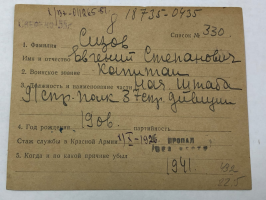 8 18735-0435
Список № 330
1. Фамилия Сизов
Имя и отчество Евгений Степанович
2. Воинское звание Капитан
3. Должность и наименование части Нач. Штаба
91 стр. полк 37 стр. дивизии
4. Год рождения 1906. партийность
Стаж службы в Красной Армии
ПРОПАЛ
5. Когда и по какой причине убыл 1941